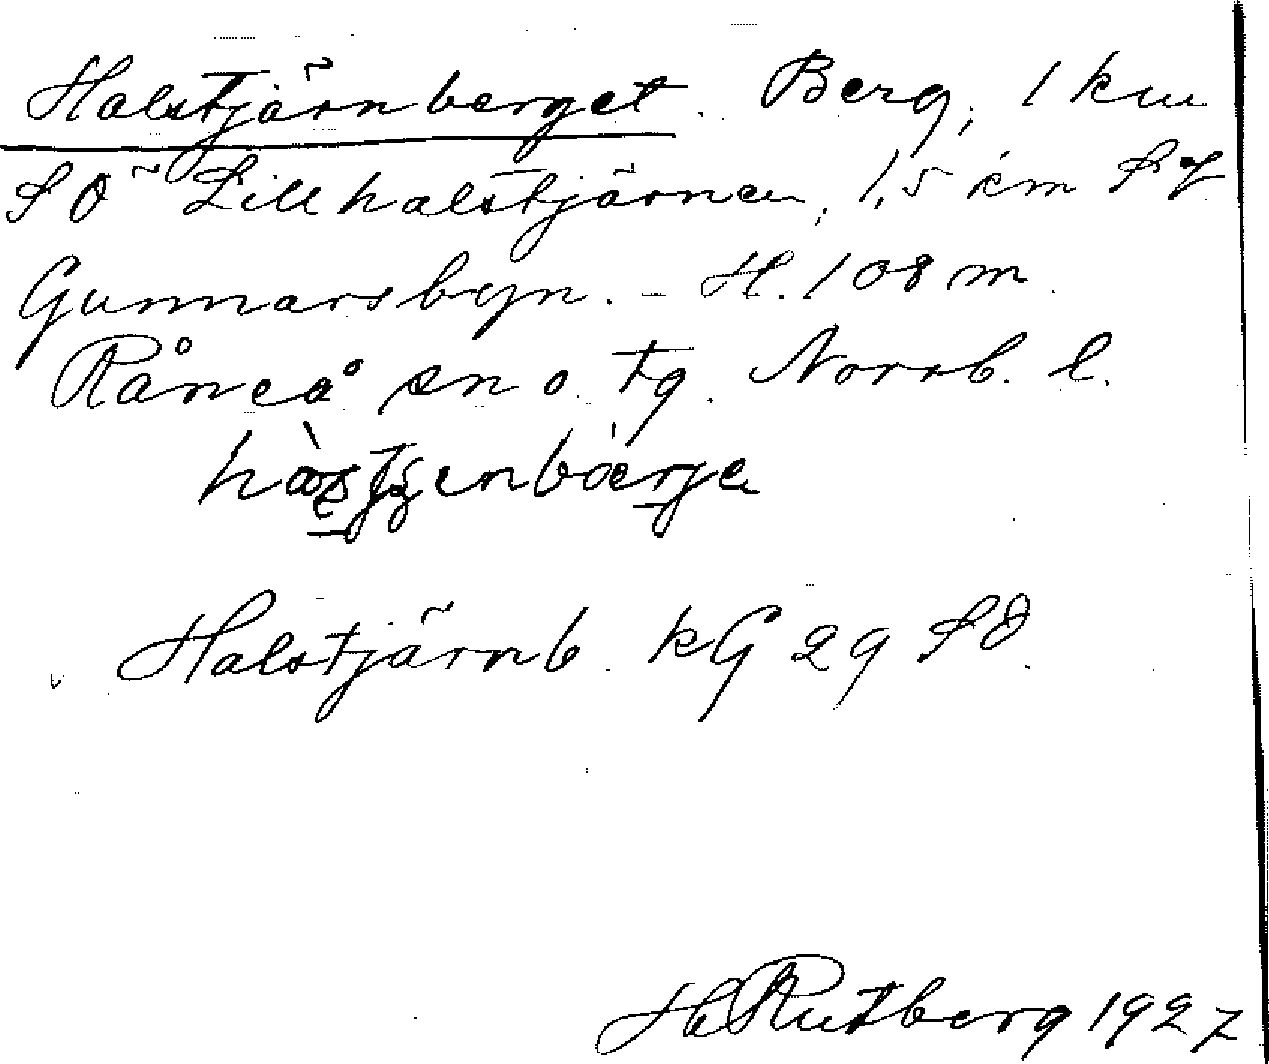 Halstjärnberget. Berg, 1 km
SÖ Lillhalstjärnen, 1,5 km SV
Gunnarsbyn. – H. 108 m.
Råneå sn o. tg. Norrb. l.
Halstjärnb. KG 29 SO.
H Rutberg 1927